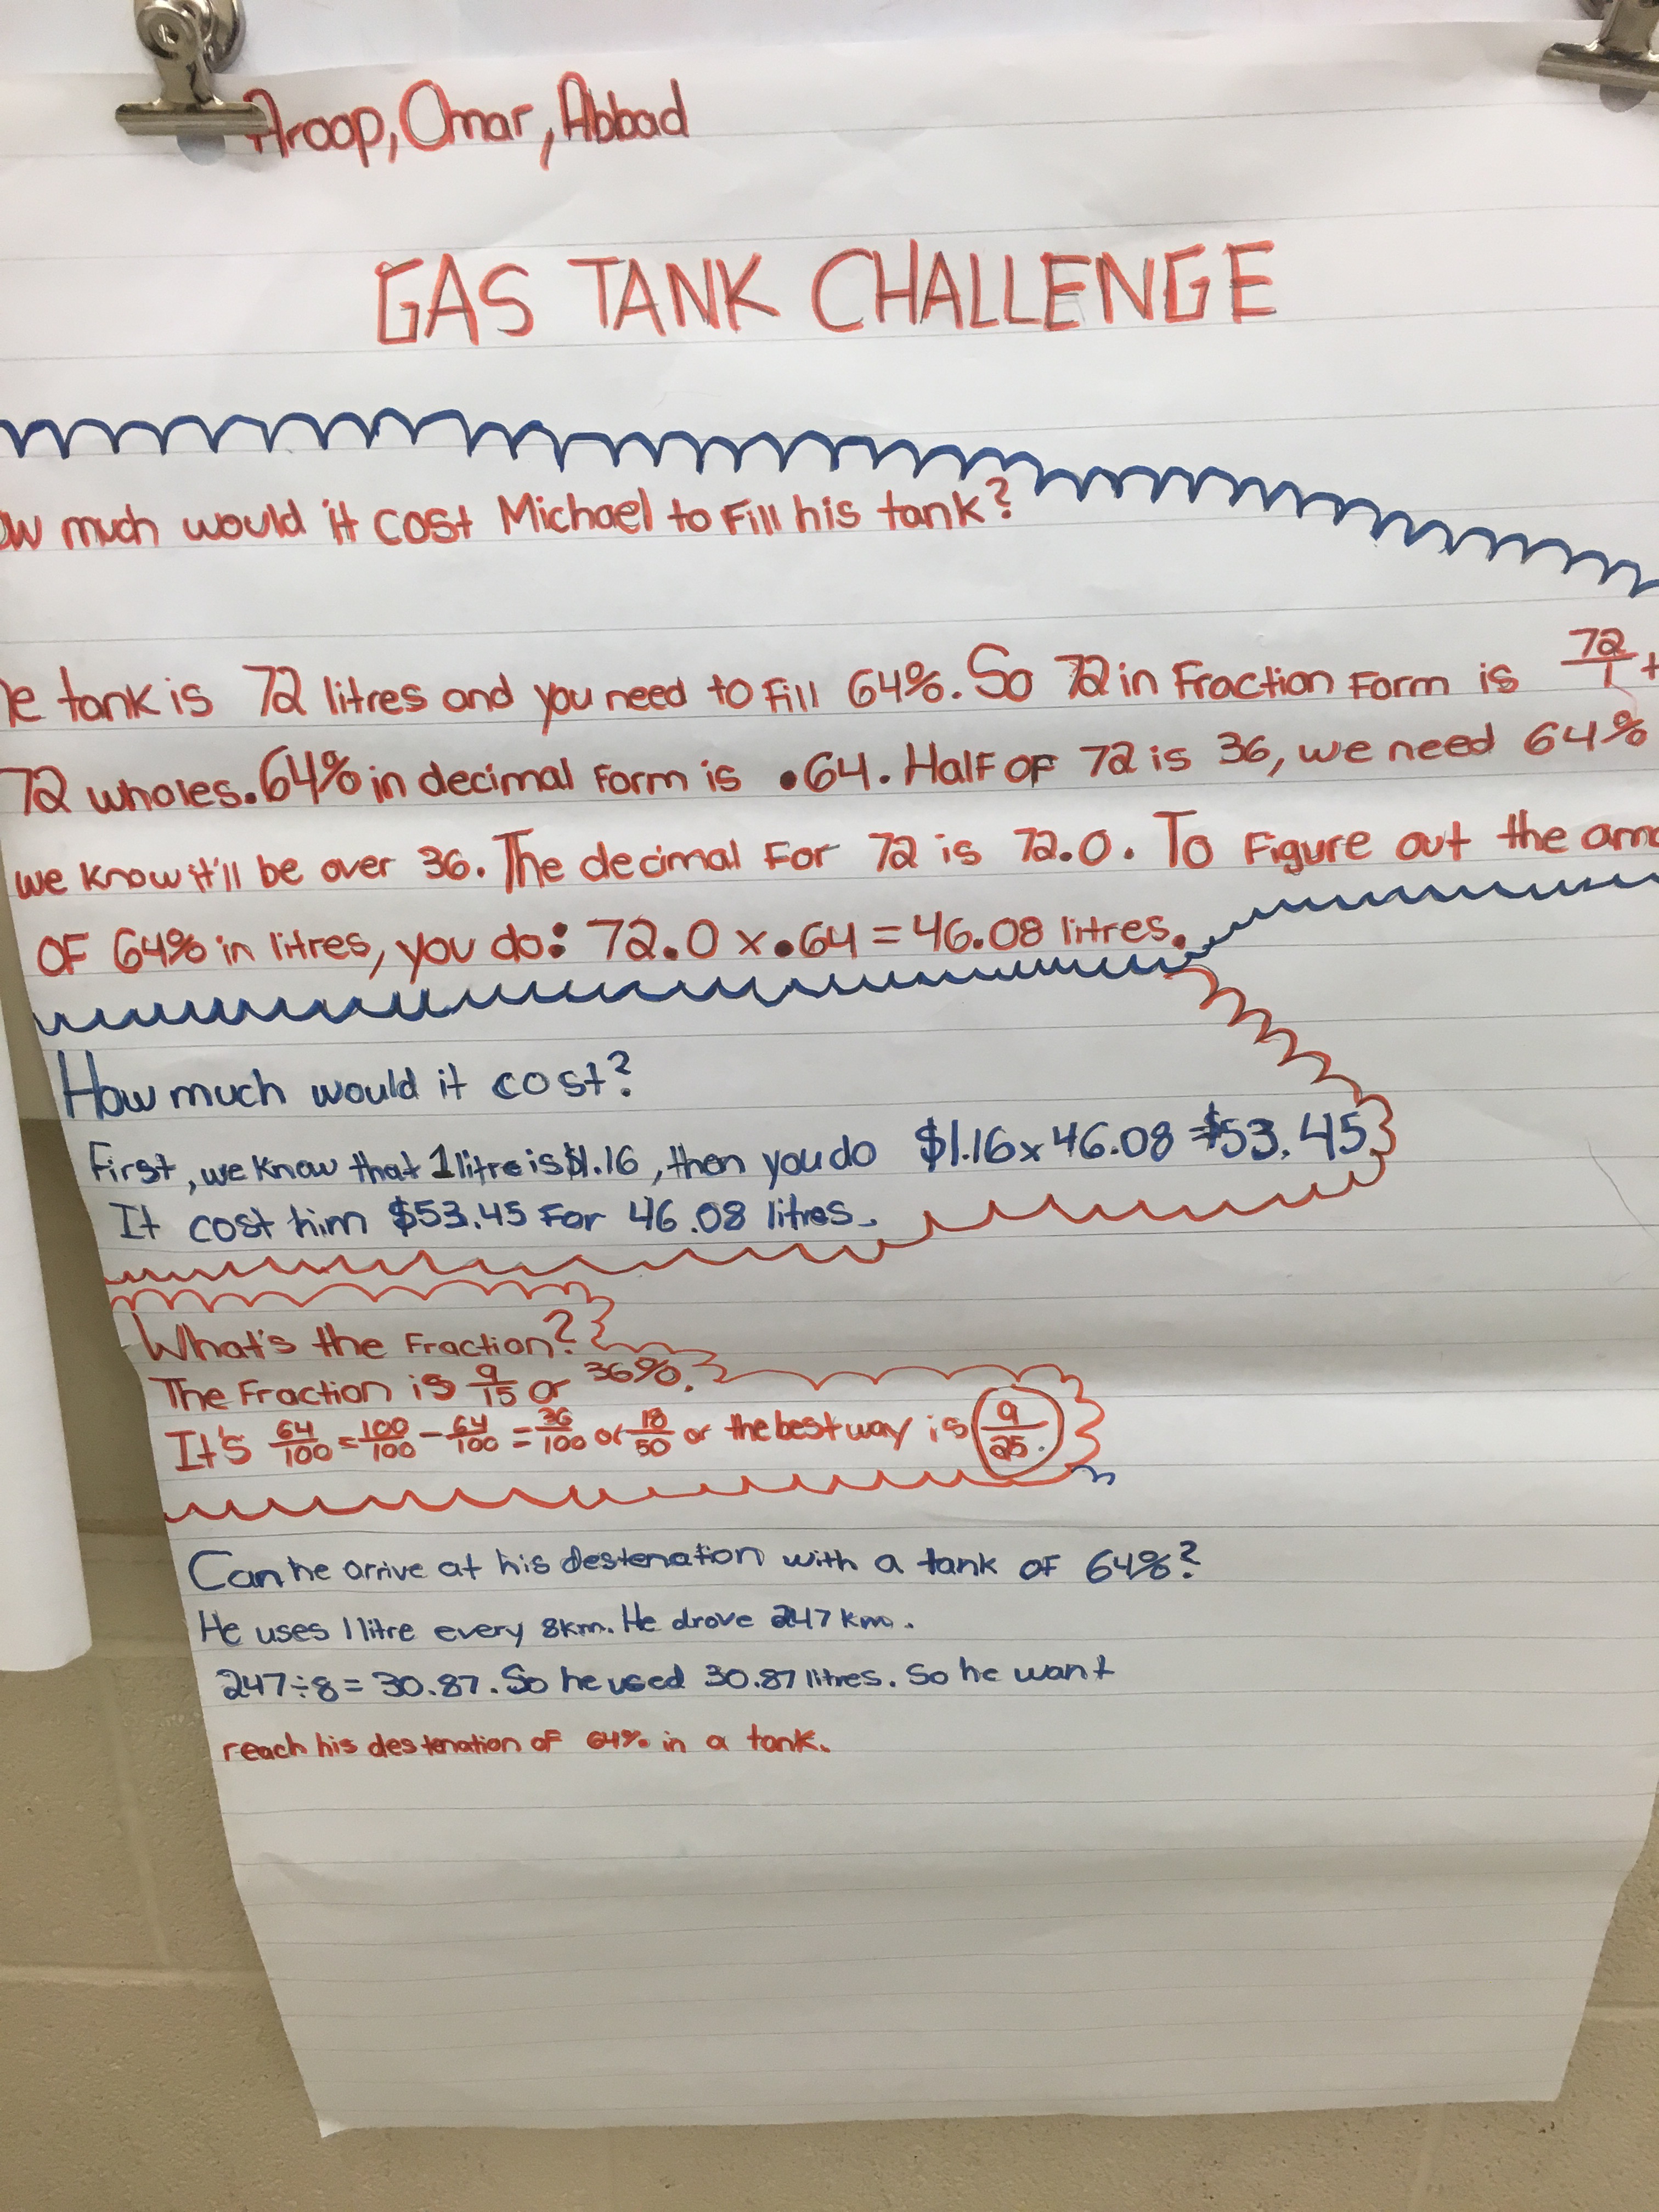 Aroop, Omar, Abbad
GAS TANK CHALLENGE
ow much would it cost Michael to Fill his tank?
he tank is 72 litres and you need to Fill 64%. So 72 in Fraction Form is 72/1 +
72 wholes. 64% in decimal Form is .64. Half OF 72 is 36, we need 64%
we know it'll be over 36. The decimal For 72 is 72.0. To Figure out the amo
OF 64% in litres, you do: 72.0 x .64 = 46.08 litres.
How much would it cost?
First, we know that 1 litre is $1.16, then you do $1.16 x 46.08 = $53.45
It cost him $53.45 For 46.08 litres.
What's the Fraction?
The Fraction is 9/15 or 36%.
It's 64/100 = 100/100 - 64/100 = 36/100 or 18/50 or the best way is 9/25.
Can he arrive at his destenation with a tank OF 64%?
He uses 1 litre every 8km. He drove 247 km.
247 ÷ 8 = 30.87. So he used 30.87 litres. So he want
reach his destenation of 64% in a tank.